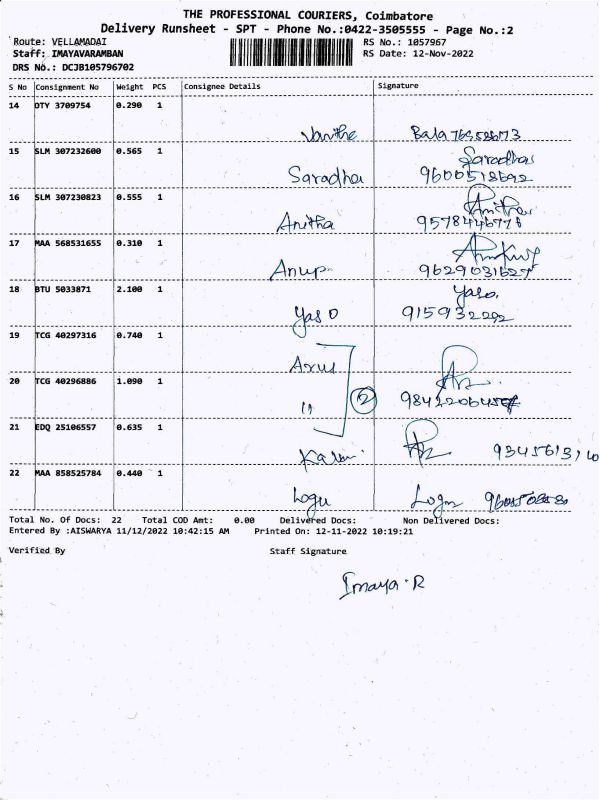 THE PROFESSIONAL COURIERS, Coimbatore
Delivery Runsheet - SPT - Phone No.:0422-3505555 - Page No.:2
Route: VELLAMADAI RS No.: 1057967
Staff: IMAYAVARAMBAN RS Date: 12-Nov-2022
DRS No.: DCJB105796702
S No Consignment No Weight PCS Consignee Details Signature
14 OTY 3709754 0.290 1
15 SLM 307232600 0.565 1
Saradha 9600518692
Saradha
16 SLM 307230823 0.555 1
Anitha 9578446778
17 MAA 568531655 0.310 1
Anup 9629031627
18 BTU 5033871 2.100 1
Yaso.
Yaso 915932292
19 TCG 40297316 0.740 1
Arul
20 TCG 40296886 1.090 1
11 2
21 EDQ 25106557 0.635 1
22 MAA 858525784 0.440 1
Logu
Total No. Of Docs: 22 Total COD Amt: 0.00 Delivered Docs: Non Delivered Docs:
Entered By :AISWARYA 11/12/2022 10:42:15 AM Printed On: 12-11-2022 10:19:21
Verified By Staff Signature
Imaya.R